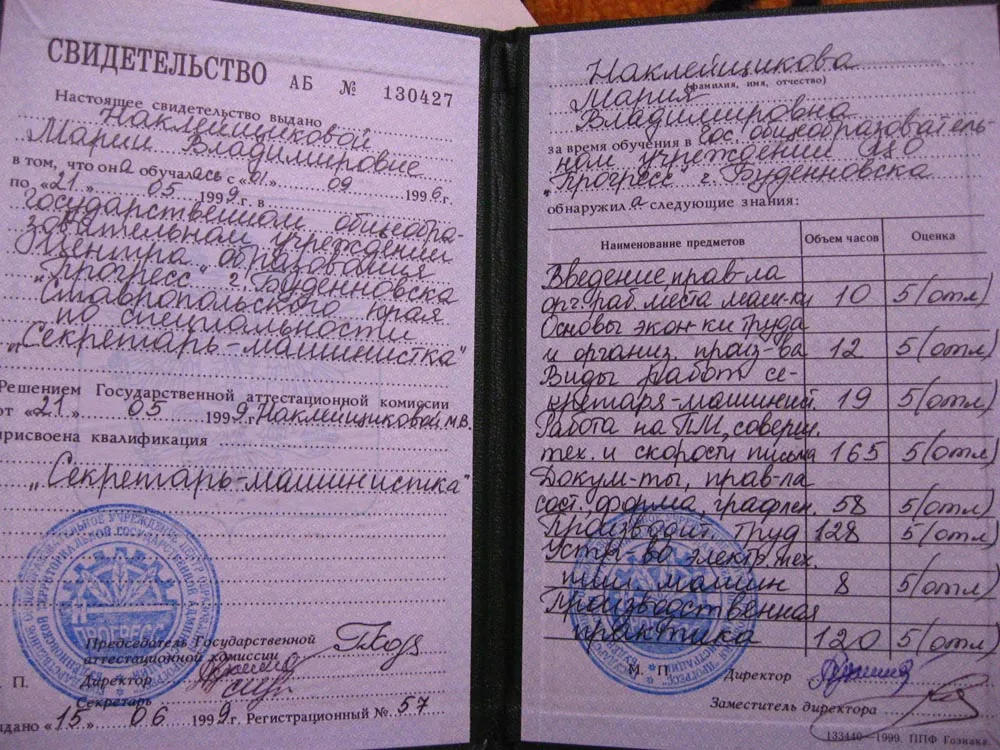 СВИДЕТЕЛЬСТВО АБ № 130427
Настоящее свидетельство выдано
Наклейщиковой
Марии Владимировне
в том, что она обучалась с «01» 09 1996 г.
по «21» 05 1999 г. в
государственном общеобра-
зовательном учреждении
Центра образования
"Прогресс" г. Буденновска
Ставропольского края
по специальности
"Секретарь-машинистка"
Решением Государственной аттестационной комиссии
от «21» 05 1999 г. Наклейщиковой М.В.
присвоена квалификация
"Секретарь-машинистка"
ПРОГРЕСС
Председатель Государственной
аттестационной комиссии
Директор
Секретарь
М. П.
Выдано «15» 06 1999 г. Регистрационный № 57
Наклейщикова
(фамилия, имя, отчество)
Мария
Владимировна
за время обучения в Гос. общеобразователь-
ном учреждении ЦО
"Прогресс" г. Буденновска
обнаружила следующие знания:
Наименование предметов Объем часов Оценка
Введение прав-ла
орг. раб. места маш-ки 10 5 (отл)
Основы экон-ки труда
и организ. произ-ва 12 5 (отл)
Виды работ се-
кретаря-машинист. 19 5 (отл)
Работа на ПМ, соверш.
тех. и скорости письма 165 5 (отл)
Докум-ты, прав-ла
сост. форма, графлен. 58 5 (отл)
Производит. труд 128 5 (отл)
Устр-во электр. тех.
пиш машин 8 5 (отл)
Производственная
практика 120 5 (отл)
М. П.
Директор
Заместитель директора
133440—1999. ППФ Гознака.